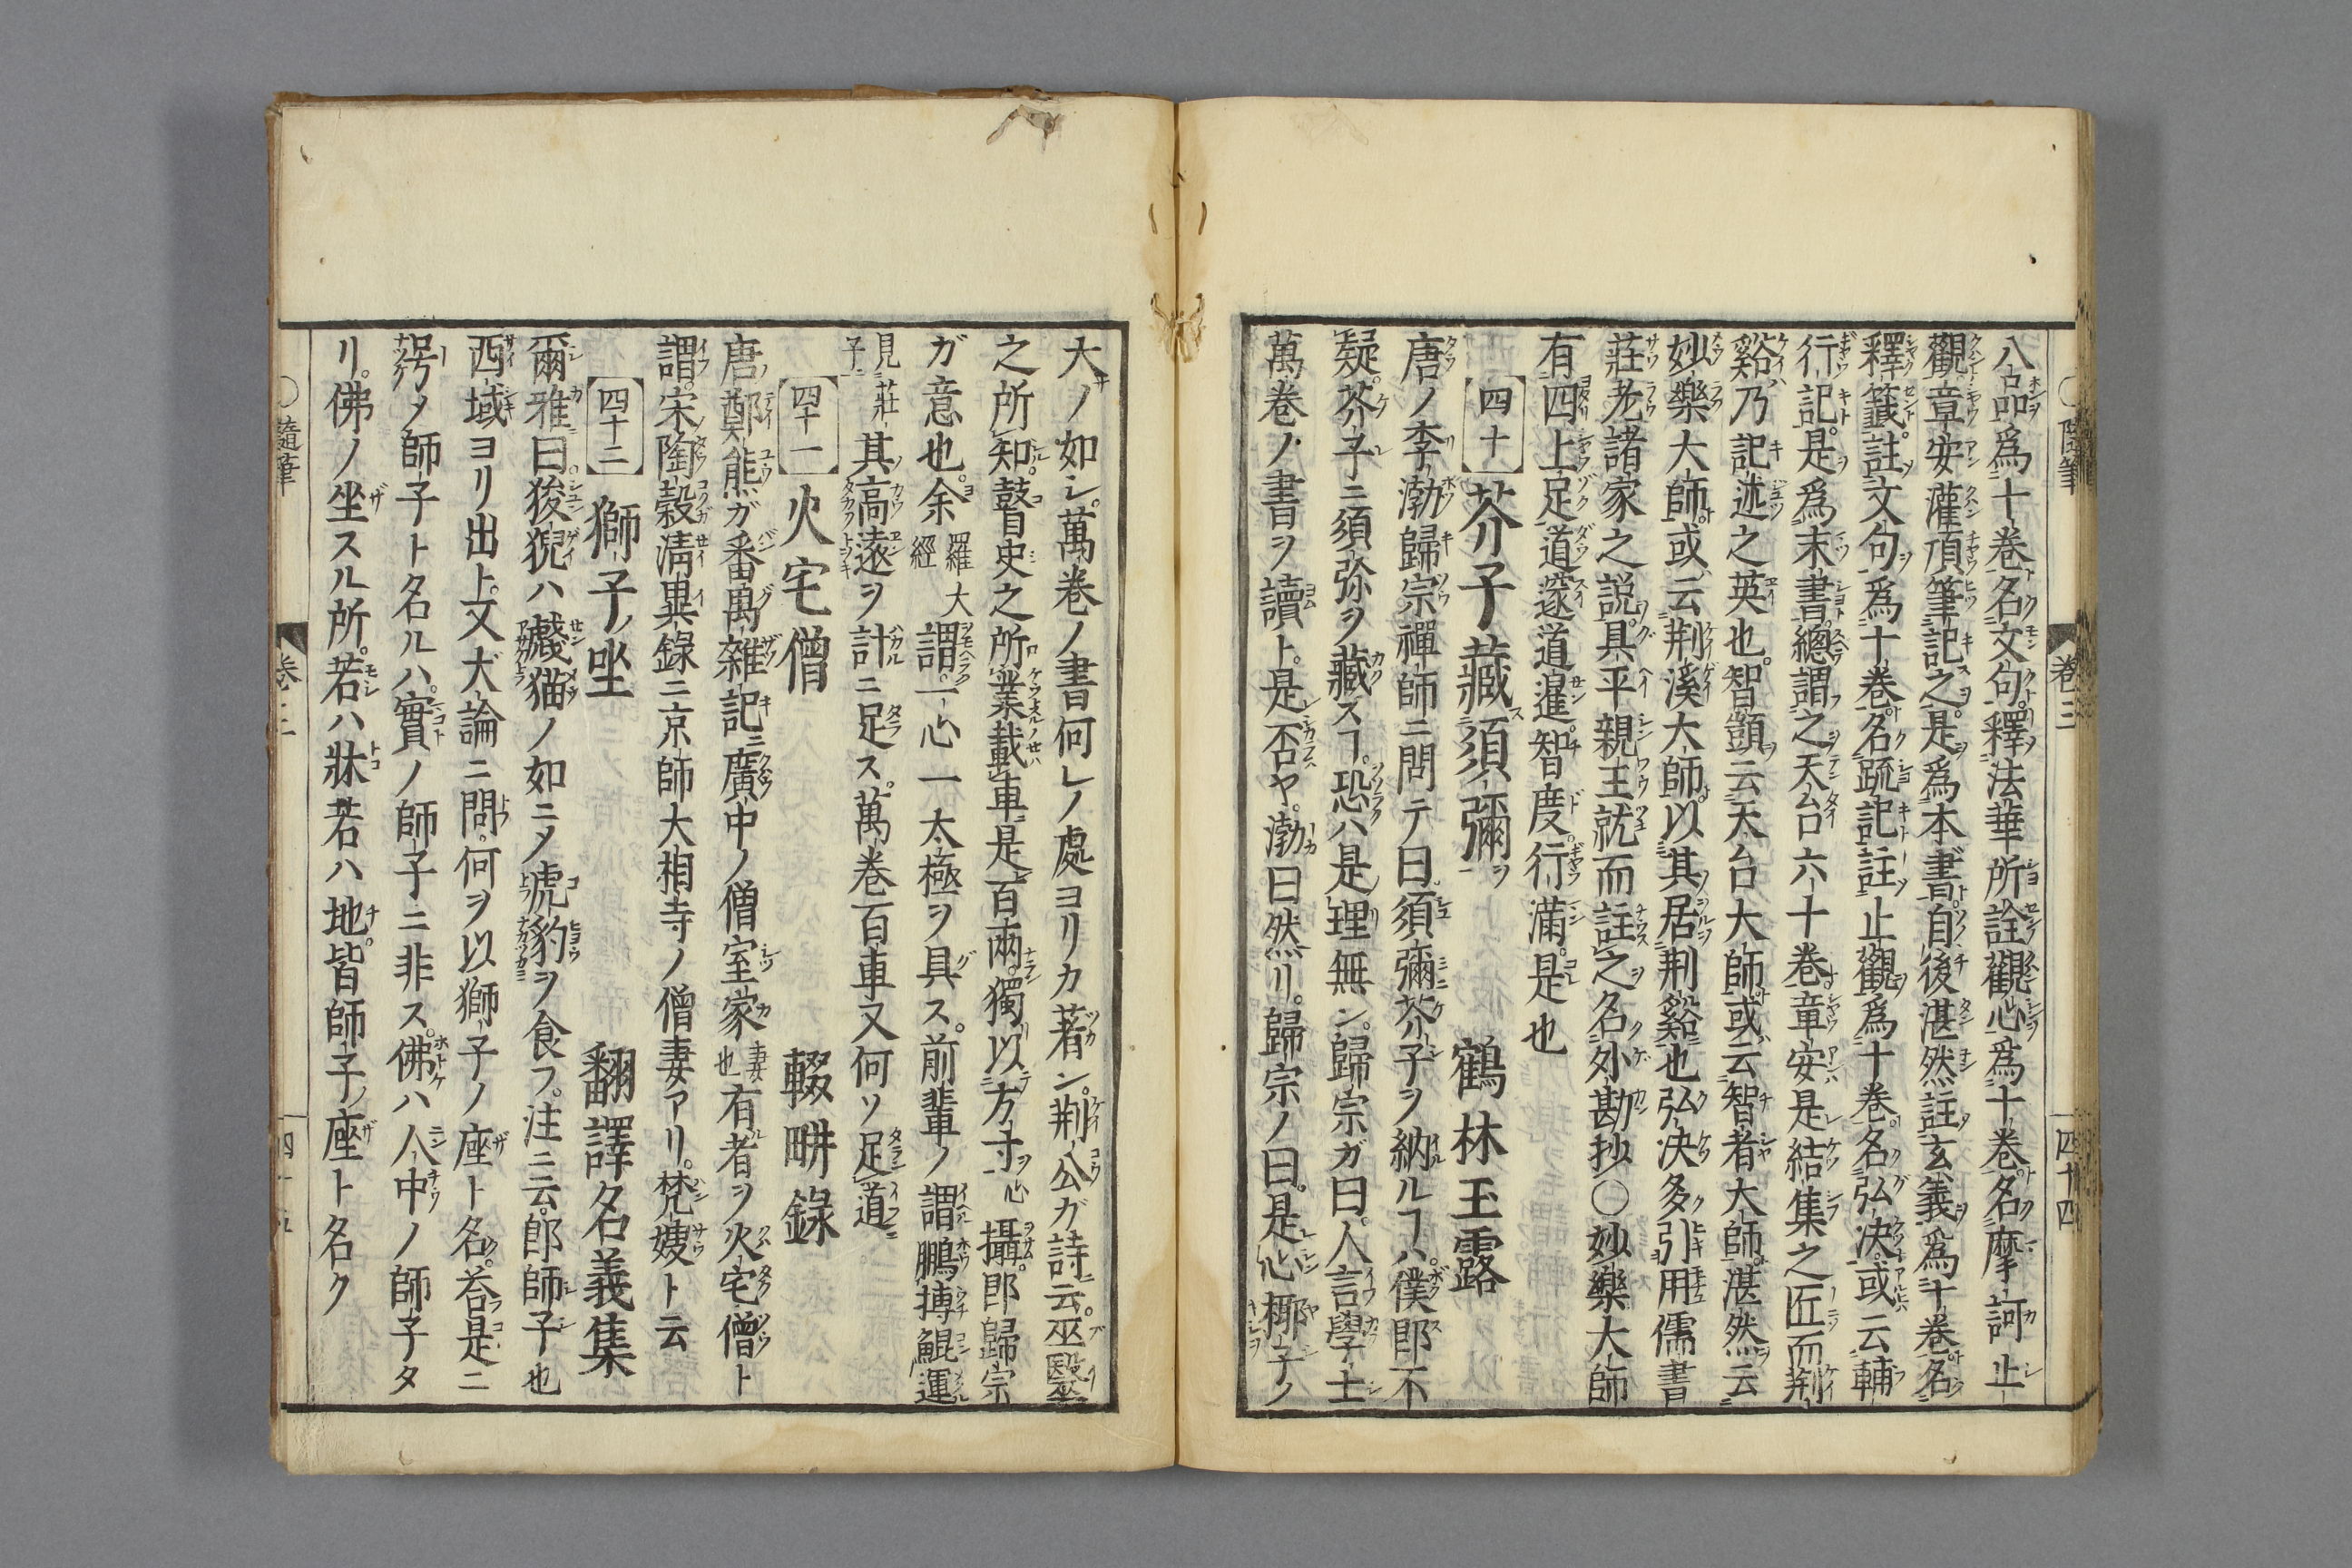 八品爲十巻名文句釋法華所詮觀心爲十巻名摩訶止
觀章安灌頂筆記之是爲本書自後湛然註玄義爲十巻名
釋籤註文句爲十巻名疏記註止觀爲十巻名弘決或云輔
行記是爲末書總謂之天台六十巻章安是結集之匠而荆
谿乃記述之英也智顗云天台大師或云智者大師湛然云
妙樂大師或云荆溪大師以其居荆谿也弘决多引用儒書
莊老諸家之説具平親王就而註之名外勘抄○妙樂大師
有四上足道邃道暹智度行滿是也
四十 芥子藏須彌 鶴林玉露
唐ノ李渤歸宗禪師ニ問テ曰須彌芥子ヲ納ルヿハ僕郎不
疑芥子ニ須弥ヲ藏スヿ恐ハ是理無ン歸宗ガ曰人言學士
萬巻ノ書ヲ讀ト是否ヤ渤曰然リ歸宗ノ曰是心椰子ノ
隨筆 巻三 四十四
大ノ如シ萬巻ノ書何レノ處ヨリカ著ン荆公ガ詩云巫醫
之所知瞽史之所業載車是百兩獨以方寸心攝郎歸宗
ガ意也余羅大經謂一心一太極ヲ具ス前輩ノ謂鵬摶鯤運
見莊子其高遠ヲ計ニ足ス萬巻百車又何ソ足道
四十一 火宅僧 輟畊錄
唐鄭熊ガ番禺雜記ニ廣中ノ僧室家妻也有者ヲ火宅僧ト
謂宋陶穀清異錄ニ京師大相寺ノ僧妻アリ梵嫂ト云
四十二 獅子ノ坐 翻譯名義集
爾雅曰狻猊ハ虥猫ノ如ニメ虎豹ヲ食フ注ニ云郎師子也
西域ヨリ出上又大論ニ問何ヲ以獅子ノ座ト名答是ニ
号メ師子ト名ルハ實ノ師子ニ非ス佛ハ人中ノ師子タ
リ佛ノ坐スル所若ハ牀若ハ地皆師子ノ座ト名ク
隨筆